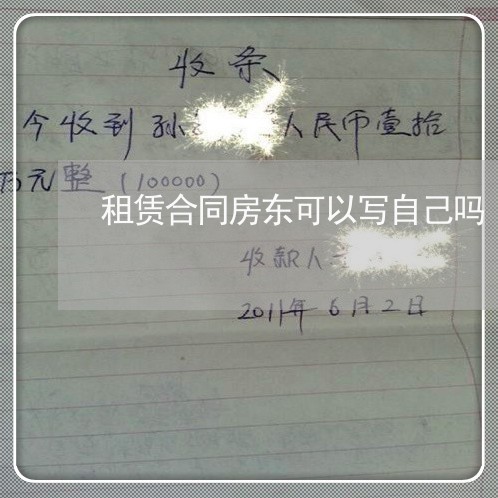 收条
今收到孙 人民币壹拾
万元整(100000)
租赁合同房东可以写自己吗
收款人
2011年6月2日